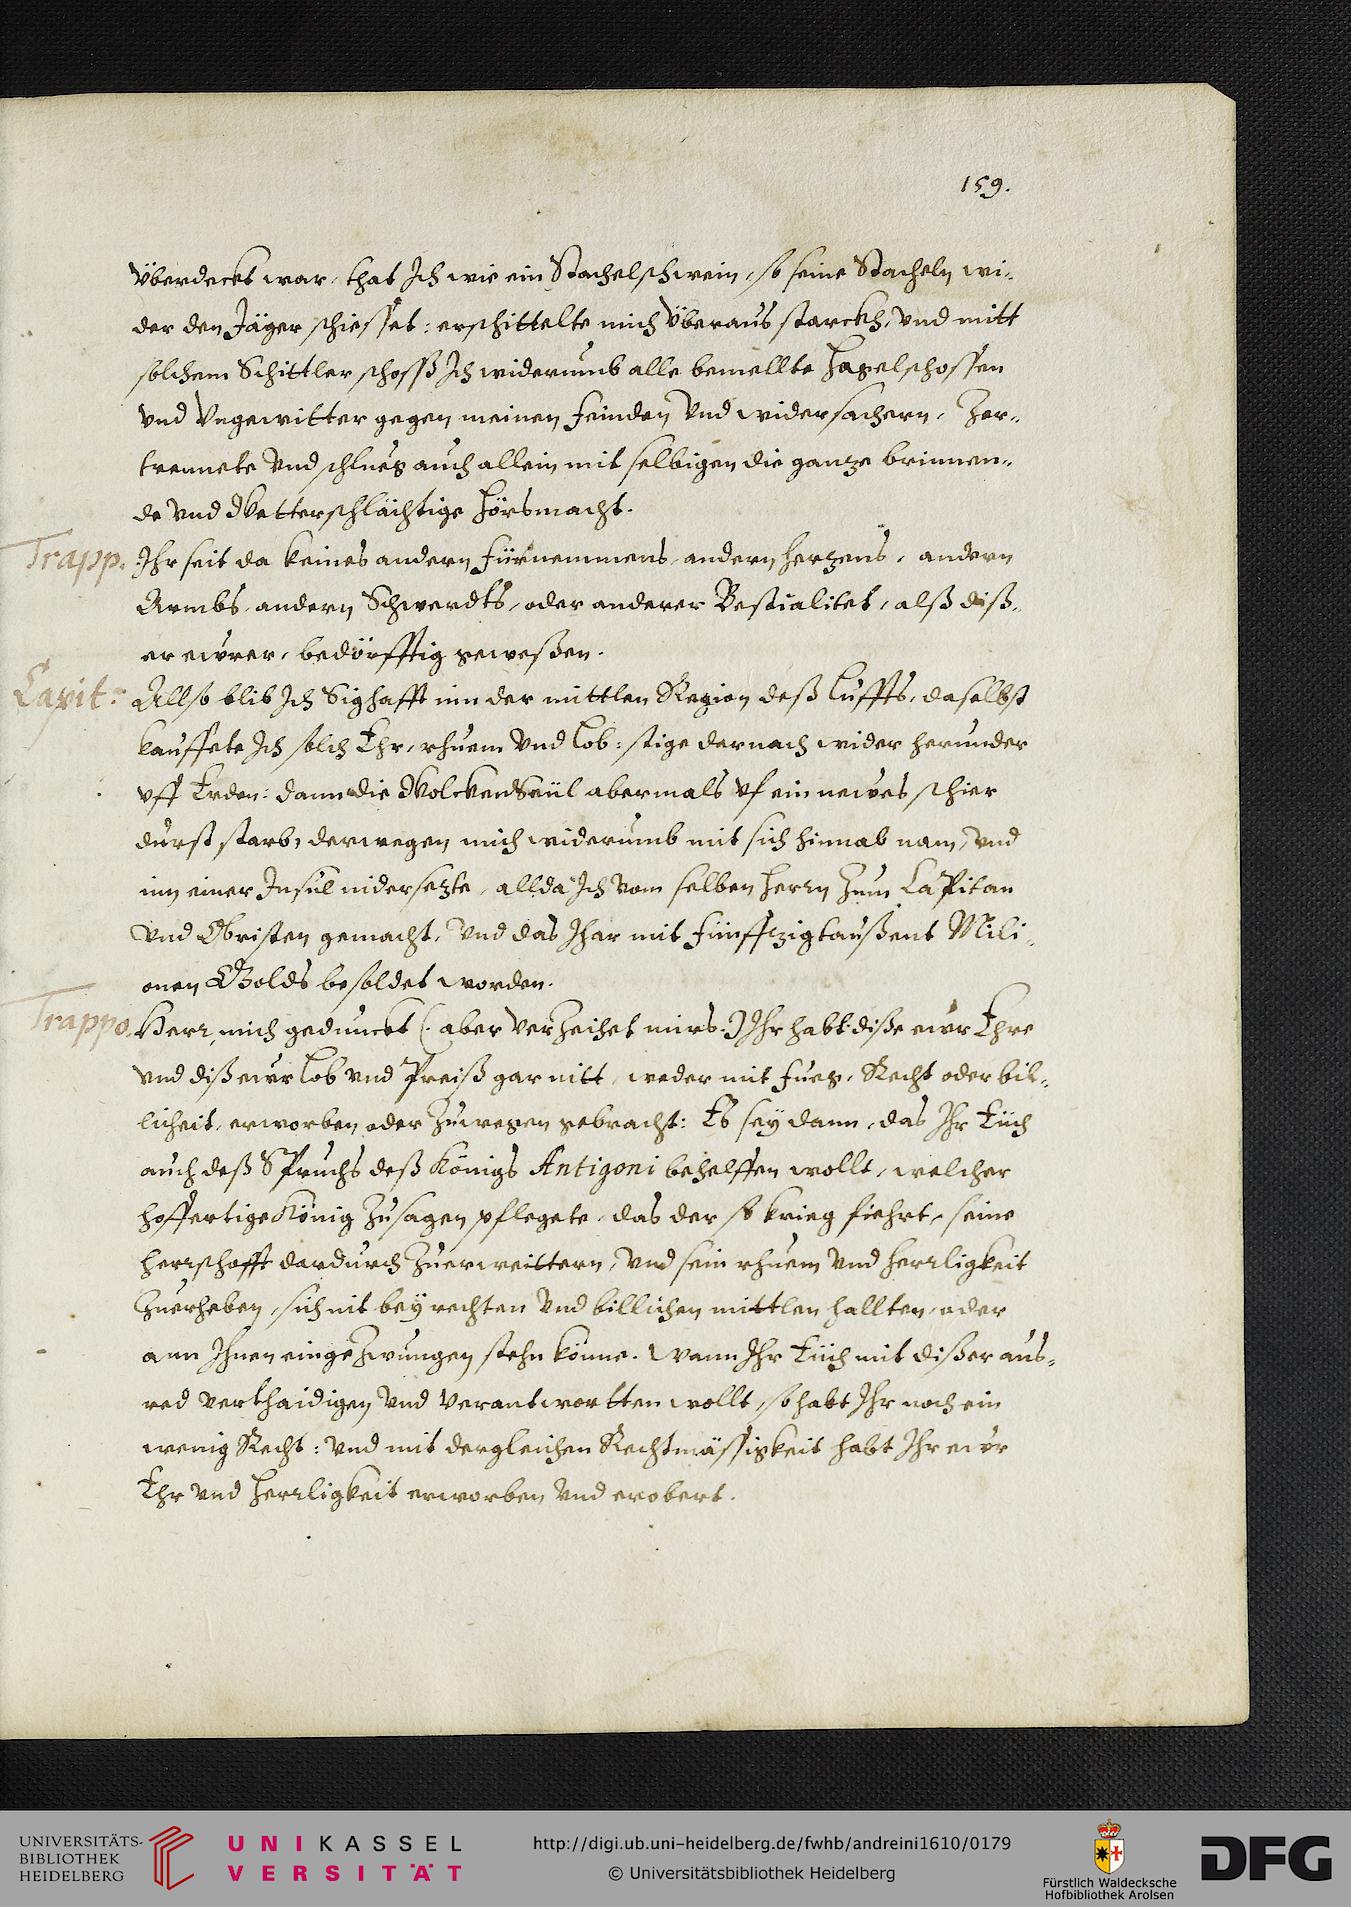 159.
Überdeckt war, that Ich wie ein Stachelschwein, so seine Stacheln wi-
der den Jäger schiesset: erschittelte mich Überaus starckh, Und mitt
solchem Schittler schosß Ich widerumb alle bemellte Hagelschossen
Und Ungewitter gegen meinen Feinden Und widersachern, Zer-
trennete Und schlueg auch allein mit selbigen die ganze brinnen-
de Und Wetterschlächtige Hörsmacht.
Trapp. Ihr seit da keines andern Fürnemmens, andern Hertzens, andern
Armbs, andern Schwerdts, oder anderer Bestialitet, alß diß-
er ewrer, bedörfftig geweßen.
Capit: Allso blib Ich Sighafft inn der mittlen Region deß Luffts, daselbst
kauffete Ich solch Ehr, rhuem Und Lob: stige darnach wider herunder
uff Erden: dann die WolckenSeül abermals uf ein newes schier
durst starb, derwegen mich widerumb mit sich hinnab nam, Und
inn einer Insul nidersetzte, allda Ich vom selben Herrn Zum CaPitan
Und Obristen gemacht, Und das Jhar mit Fünffzigtaußent Mili-
onen Golds besoldet worden.
Trappo. Herr, mich geduncket (: aber Verzeihet mirs :) Ihr habt diße ewr Ehre
Und diß ewr Lob Und Preiß gar nitt, weder mit Fueg, Recht oder bil-
licheit, erworben oder Zuwegen gebracht: Es seÿ dann, das Ihr Eüch
auch deß SPruchs deß Königs Antigoni behelffen wollt, welcher
hoffertige König Zusagen pflegete, das der so krieg fiehrt, seine
herrschafft dardurch Zuerweittern, Und sein rhuem Und Herrligkeit
Zuerheben, sich nit beÿ rechten Und billichen mittlen hallten, oder
ann Ihnen eingeZwungen stehn könne. Wann Ihr Eüch mit dißer aus-
red Verthaidigen Und Verantwortten wollt, so habt Ihr noch ein
wenig Recht: Und mit dergleichen Rechtmässigkeit habt Ihr ewr
Ehr Und Herrligkeit erworben Und erobert.
UNIVERSITÄTS-
BIBLIOTHEK
HEIDELBERG
UNIKASSEL
VERSITÄT
http://digi.ub.uni-heidelberg.de/fwhb/andreini1610/0179
© Universitätsbibliothek Heidelberg
Fürstlich Waldecksche
Hofbibliothek Arolsen
DFG